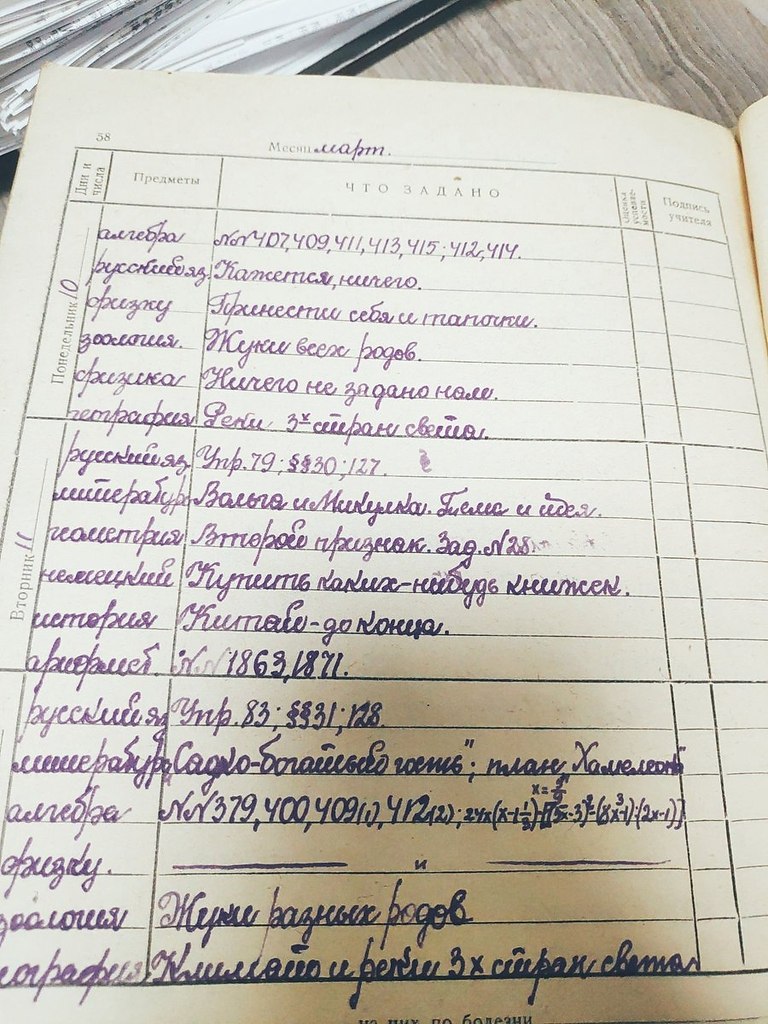 58
Месяц март.
Дни и числа Предметы ЧТО ЗАДАНО Оценка успеваемости Подпись учителя
Понедельник 10
алгебра №№407,409,411,413,415; 412,414.
русский яз. Кажется, ничего.
физку Принести себя и тапочки.
зоология. Жуки всех родов.
физика Ничего не задано нам.
география Реки 3х стран света.
Вторник 11
русский яз. Упр. 79; §§30; 127.
литература Вольга и Микулка. Тема и идея.
геометрия Второй признак. Зад. №28
немецкий Купить каких-нибудь книжек.
история Китай - до конца.
арифмет. №№1863,1871.
русский яз Упр. 83; §§31; 128
литература „Садко-богатый гость"; план „Хамелеона"
алгебра №№379,400,409(1),412(2);
физку. и
зоология Жуки разных родов
география Климат и реки 3х стран света
из них по болезни